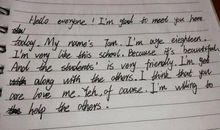 Hello everyone! I'm glad to meet you here
today. My name's Tom. I'm age eighteen.
I'm very like this school. Because it's beautiful.
And the students is very friendly. I'm get
along with the others. I think that you
are love me. Yeh, of course. I'm willing to
help the others.